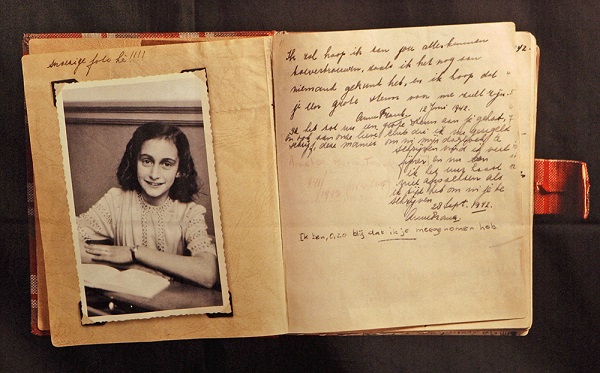 snoezige foto hè!!!!
Ik zal hoop ik aan jou alles kunnen
toevertrouwen, zoals ik het nog aan
niemand gekund heb, en ik hoop dat
je een grote steun voor me zult zijn.
Anne Frank. 12 Juni 1942.
Ik heb tot nu een grote steun aan je gehad,
en ook aan onze lieve club die ik nu geregeld
schrijf, deze manier om in mijn dagboek te
schrijven vind ik veel
fijner en nu kan
ik het uur haast
niet afwachten als
ik tijd heb om in je te
schrijven.
28 Sept. 1942.
Anne Frank
Ik ben, o, zo blij dat ik je meegenomen heb
42.